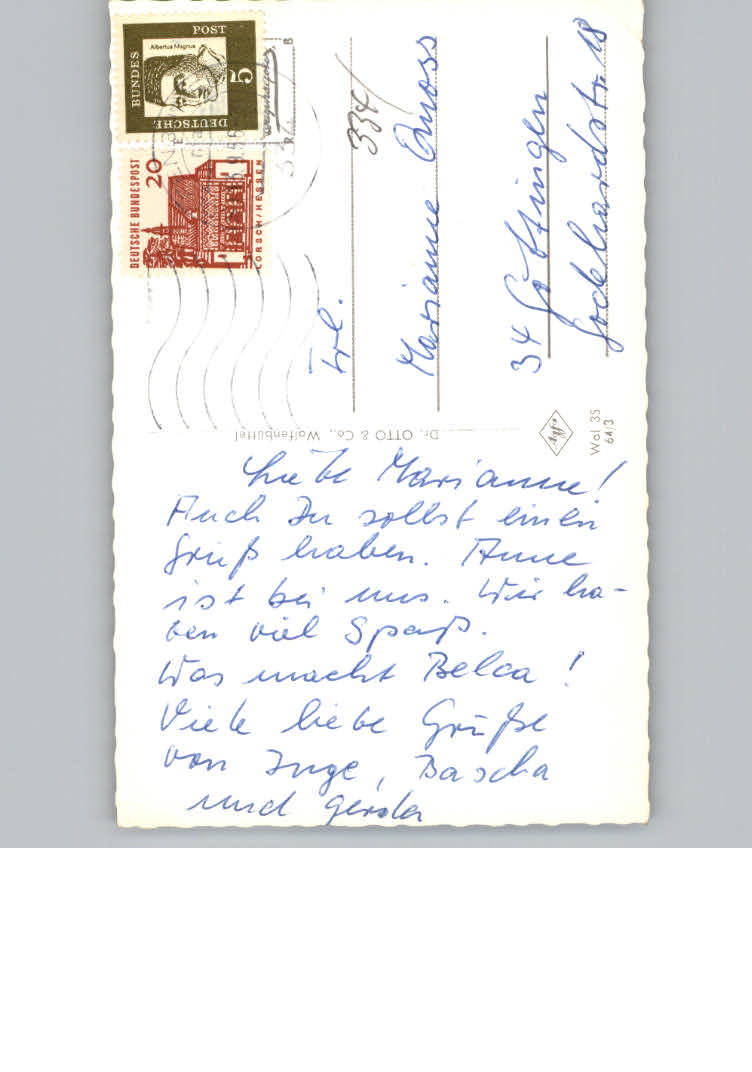 Liebe Marianne!
Auch Du sollst einen
Gruß haben. Anne
ist bei uns. Wir ha-
ben viel Spaß.
Was macht Belca!
Viele liebe Grüße
von Inge, Bascha
und Gerda
Frl.
Marianne
34 Göttingen
Godehardstr. 18
334/
Dr. OTTO & Co., Wolfenbüttel
Agfa
Wol 35
64/3
DEUTSCHE
BUNDES
POST
Albertus Magnus
5
DEUTSCHE BUNDESPOST
20
LORSCH/HESSEN